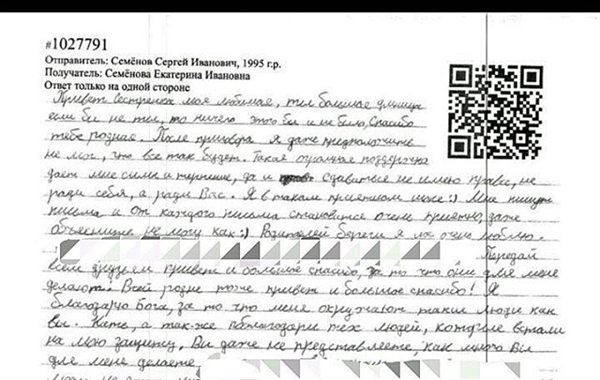 #1027791
Отправитель: Семёнов Сергей Иванович, 1995 г.р.
Получатель: Семёнова Екатерина Ивановна
Ответ только на одной стороне
Привет сестренка моя любимая, ты большая умница
если бы не ты, то ничего этого бы и не было, Спасибо
тебе родная. После приговора я даже предположить
не мог, что все так будет. Такая огромная поддержка
дает мне силы и терпение, да и сдаваться не имею права, не
ради себя, а ради Вас. Я в таком приятном шоке :) Мне пишут
письма и от каждого письма становится очень приятно, даже
объяснить не могу как :) Родителей береги я их очень люблю.
Передай
всем друзьям привет и большое спасибо, за то что они для меня
делают. Всей родне тоже привет и большое спасибо! Я
благодарю Бога, за то что меня окружают такие люди как
вы. Кать, а так-же поблагодари тех людей, которые встали
на мою защиту, Вы даже не представляете, как много Вы
для меня делаете